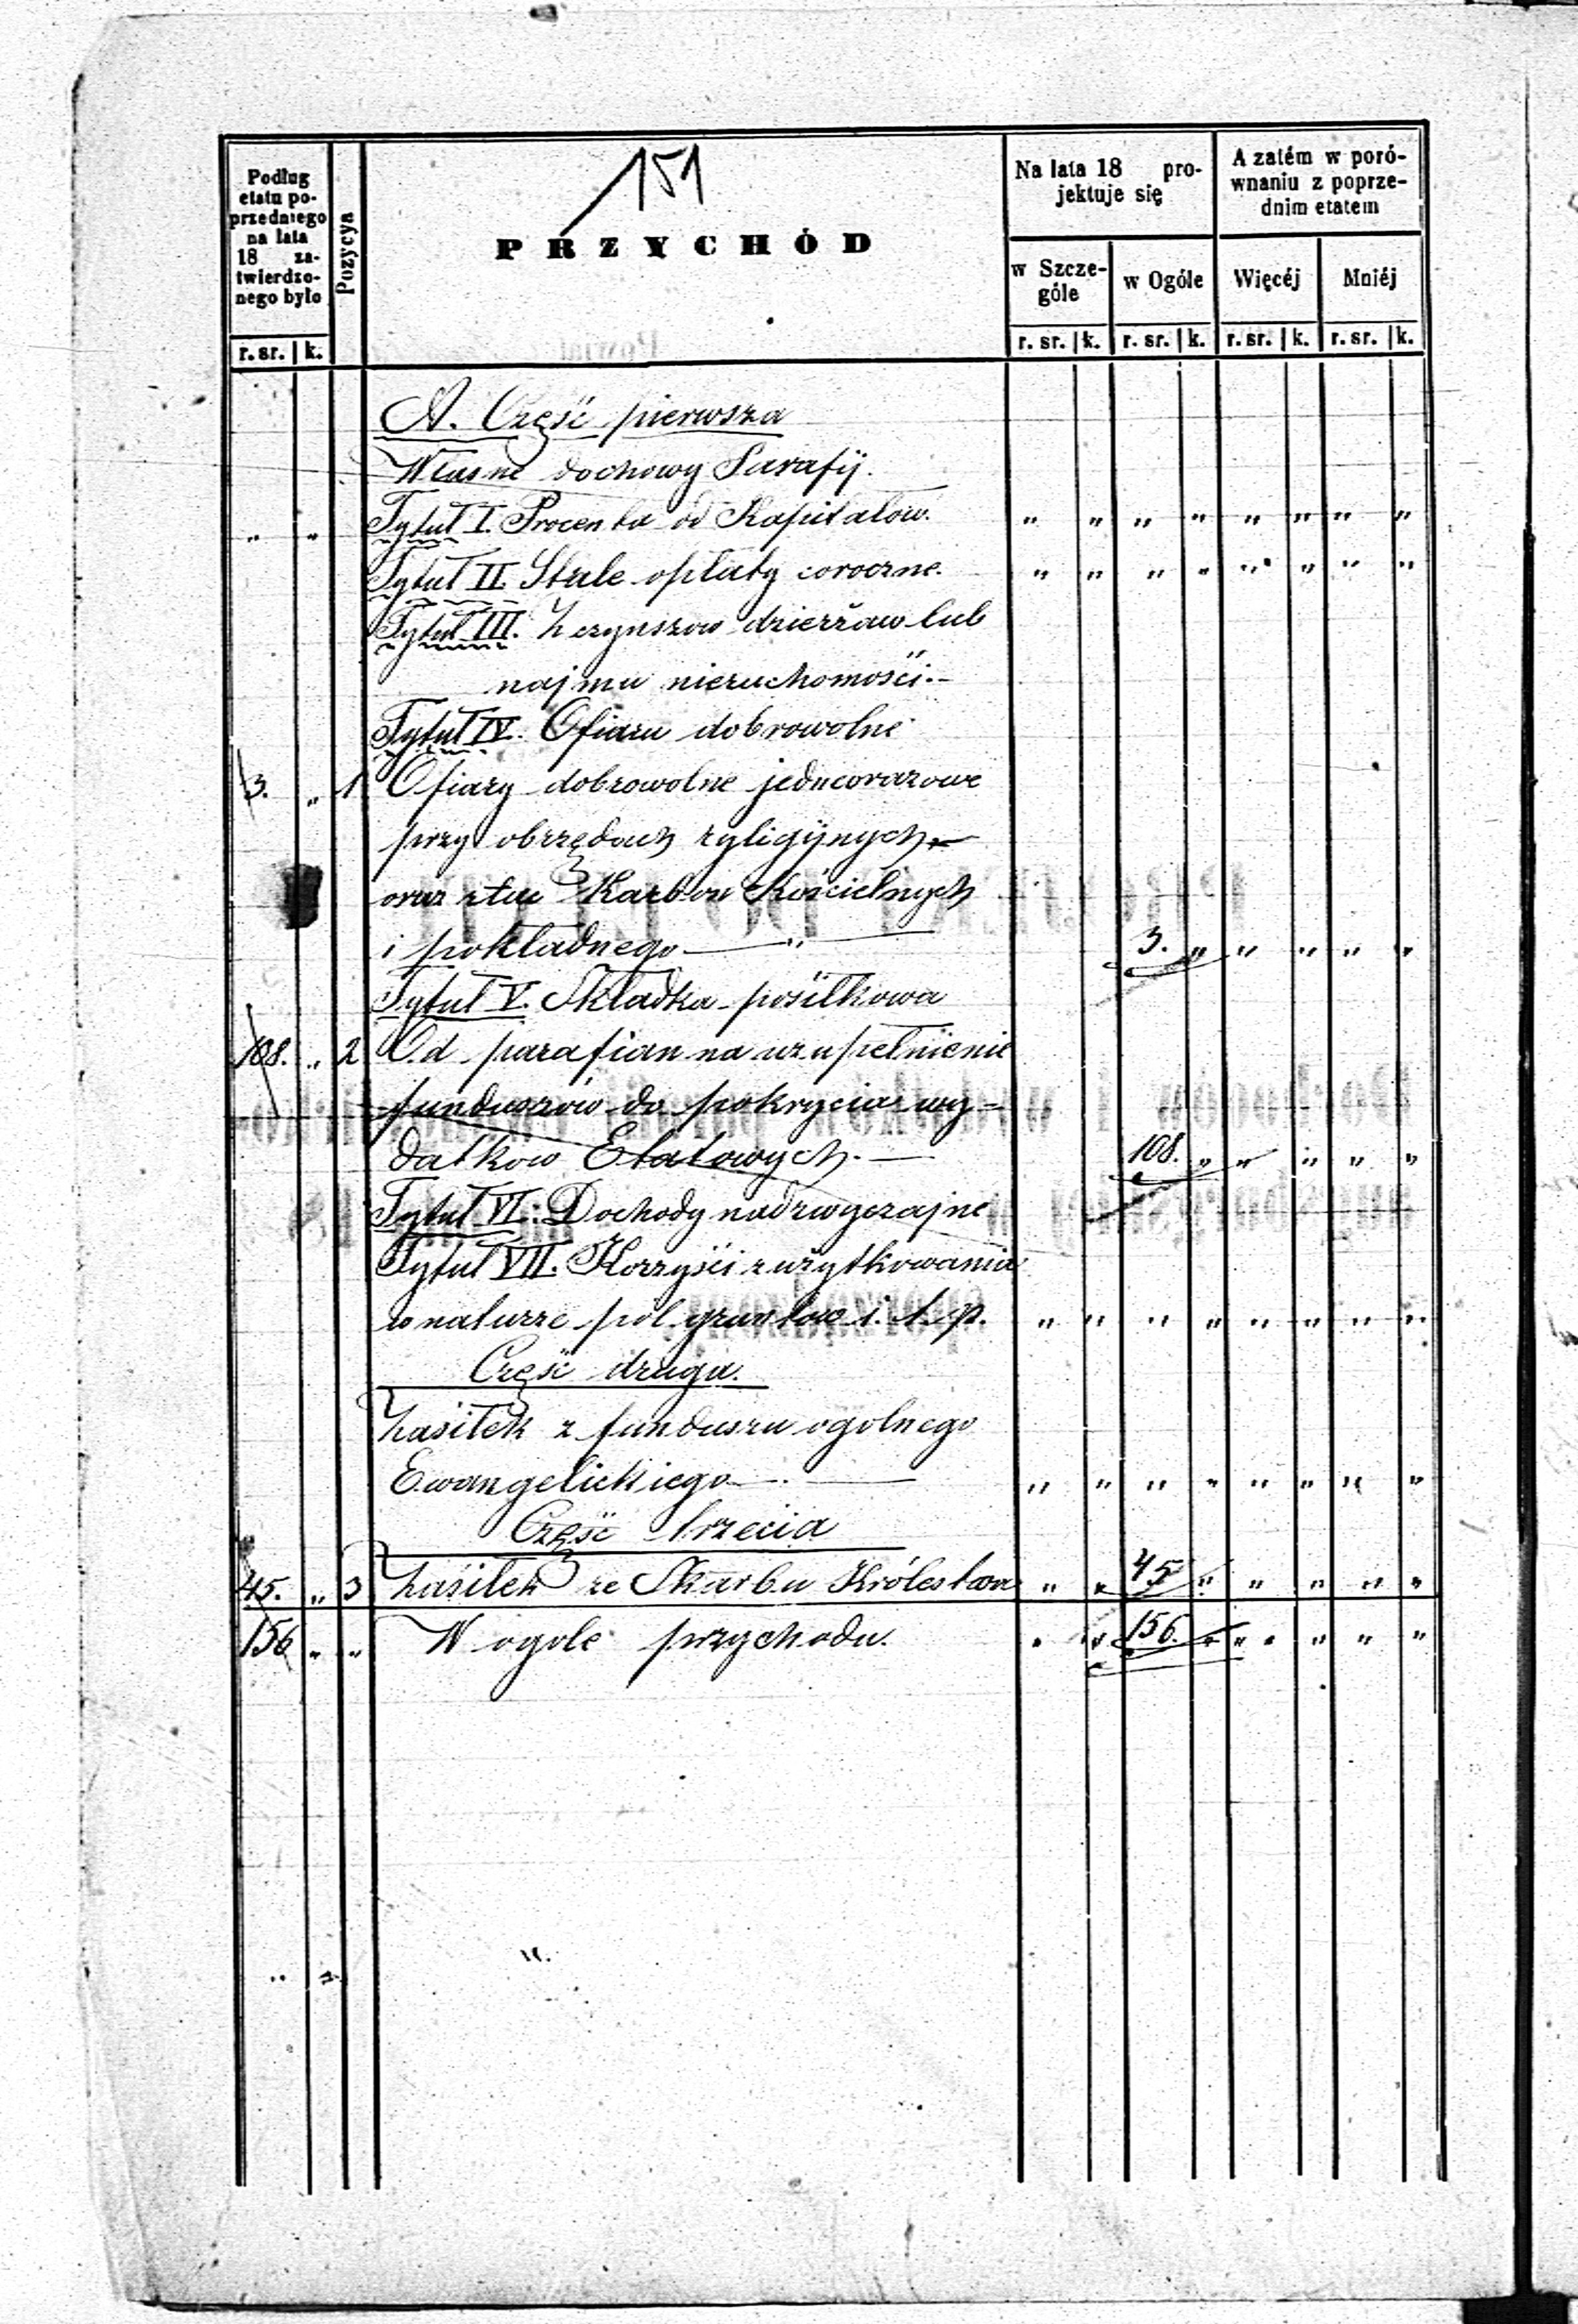 151
Podług etatu poprzedniego na lata 18 zatwierdzonego było
Pozycya
PRZYCHÓD
Na lata 18 projektuje się
A zatém w porównaniu z poprzednim etatem
w Szczególe
w Ogóle
Więcéj
Mniéj
r. sr. k. r. sr. k. r. sr. k. r. sr. k. r. sr. k.
A. Część pierwsza
Własne dochowy Parafij.
„ „ Tytuł I. Procenta od Kapitałow. „ „ „ „ „ „ „ „
Tytuł II. Stałe opłaty coroczne. „ „ „ „ „ „ „ „
Tytuł III. Z czynszow dzierżaw lub
najmu nieruchomości.-
Tytuł IV. Ofiary dobrowolne
3. „ 1 Ofiary dobrowolne jednorazowe
przy obrzędach religijnych
oraz Karbon Kościelnych
i pokładnego — 3. „ „ „ „ „
Tytuł V. Składka posiłkowa
108. „ 2 Od parafian na uzupełnienie
funduszów do pokrycia wy-
datkow Etatowych.— 108. „ „ „ „ „
Tytuł VI. Dochody nadzwyczajne
Tytuł VII. Korzyści z użytkowania
w naturze pól gruntow i. t. p. „ „ „ „ „ „ „ „
Część druga.
Zasiłek z funduszu ogolnego
Ewangelickiego — „ „ „ „ „ „ „ „
Część trzecia
45. „ 3 Zasiłek ze Skarbu Królestwa „ „ 45 „ „ „ „ „
156 „ „ W ogole przychodu. „ „ 156. „ „ „ „ „